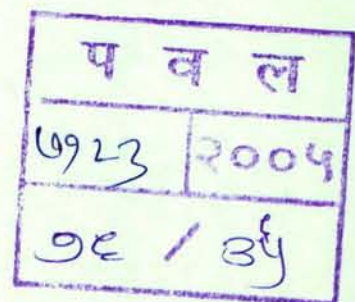 प व ल
७१२३ २००५
१६ / ३५